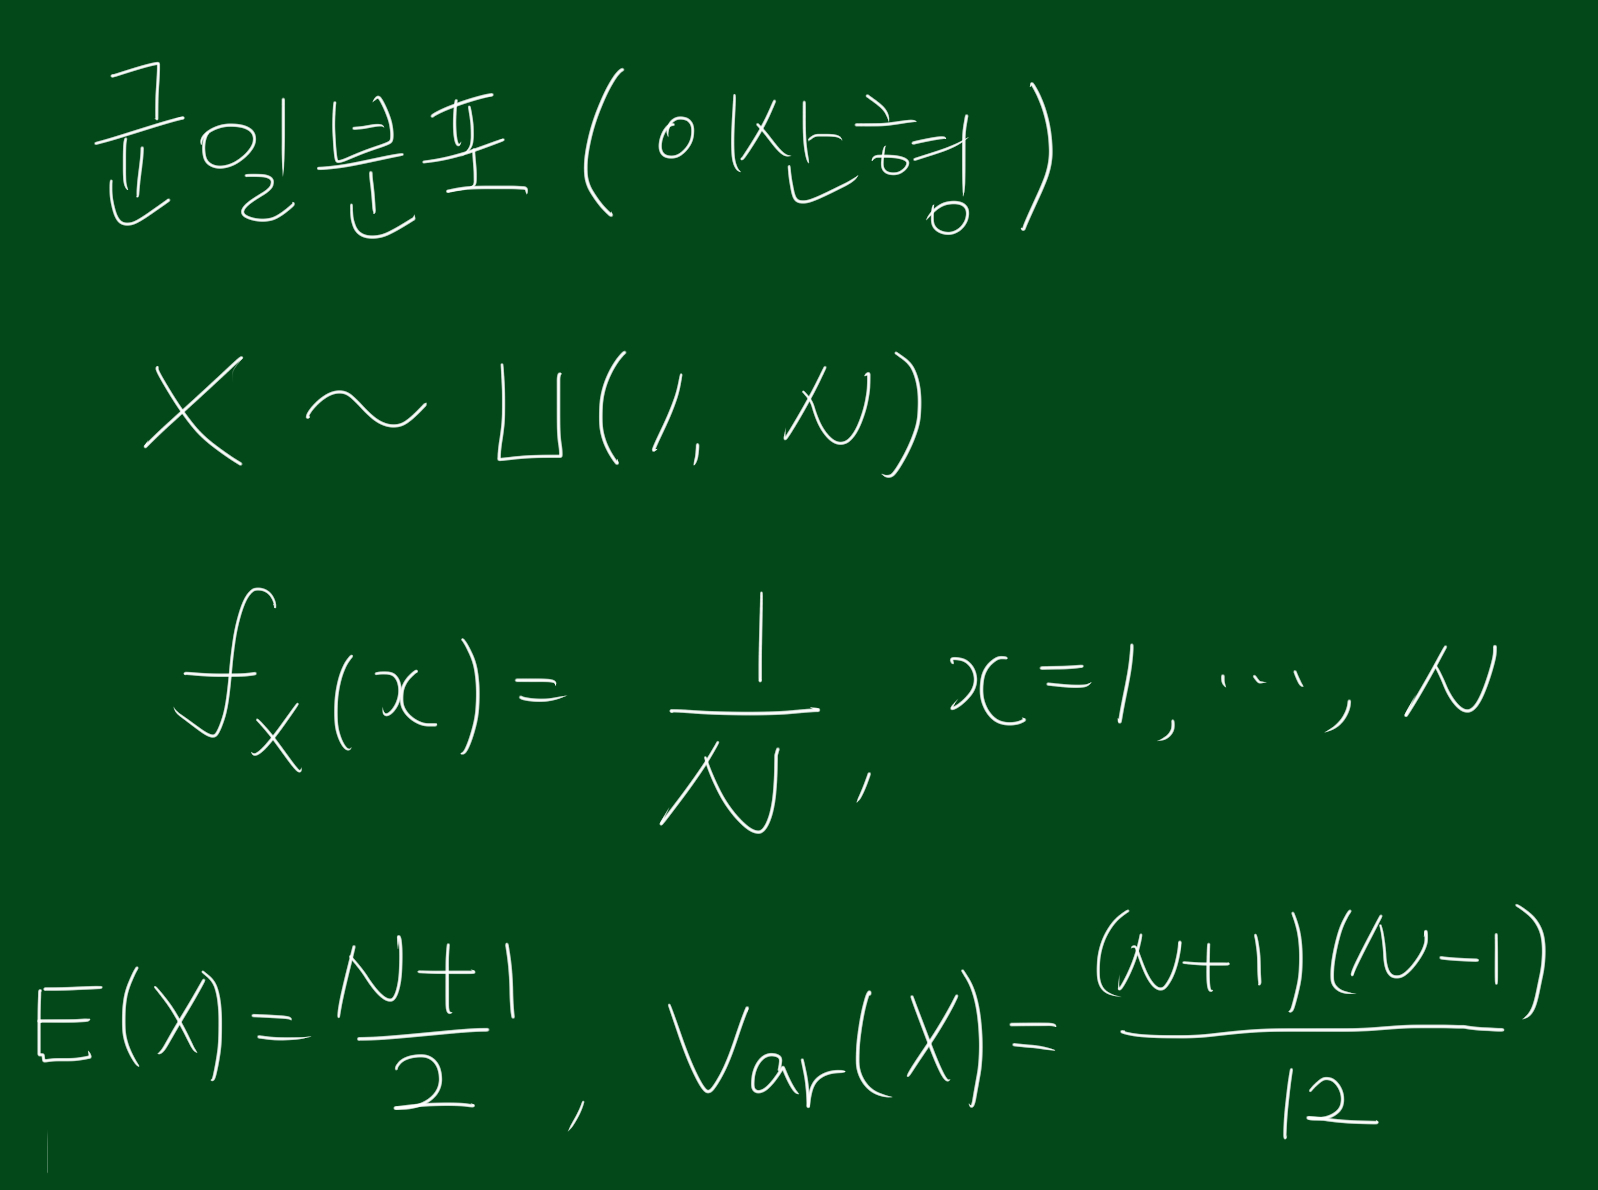 균일분포 (이산형)
X ~ U(1, N)
f_X(x) = 1/N, x=1, ..., N
E(X) = N+1/2, Var(X) = (N+1)(N-1)/12